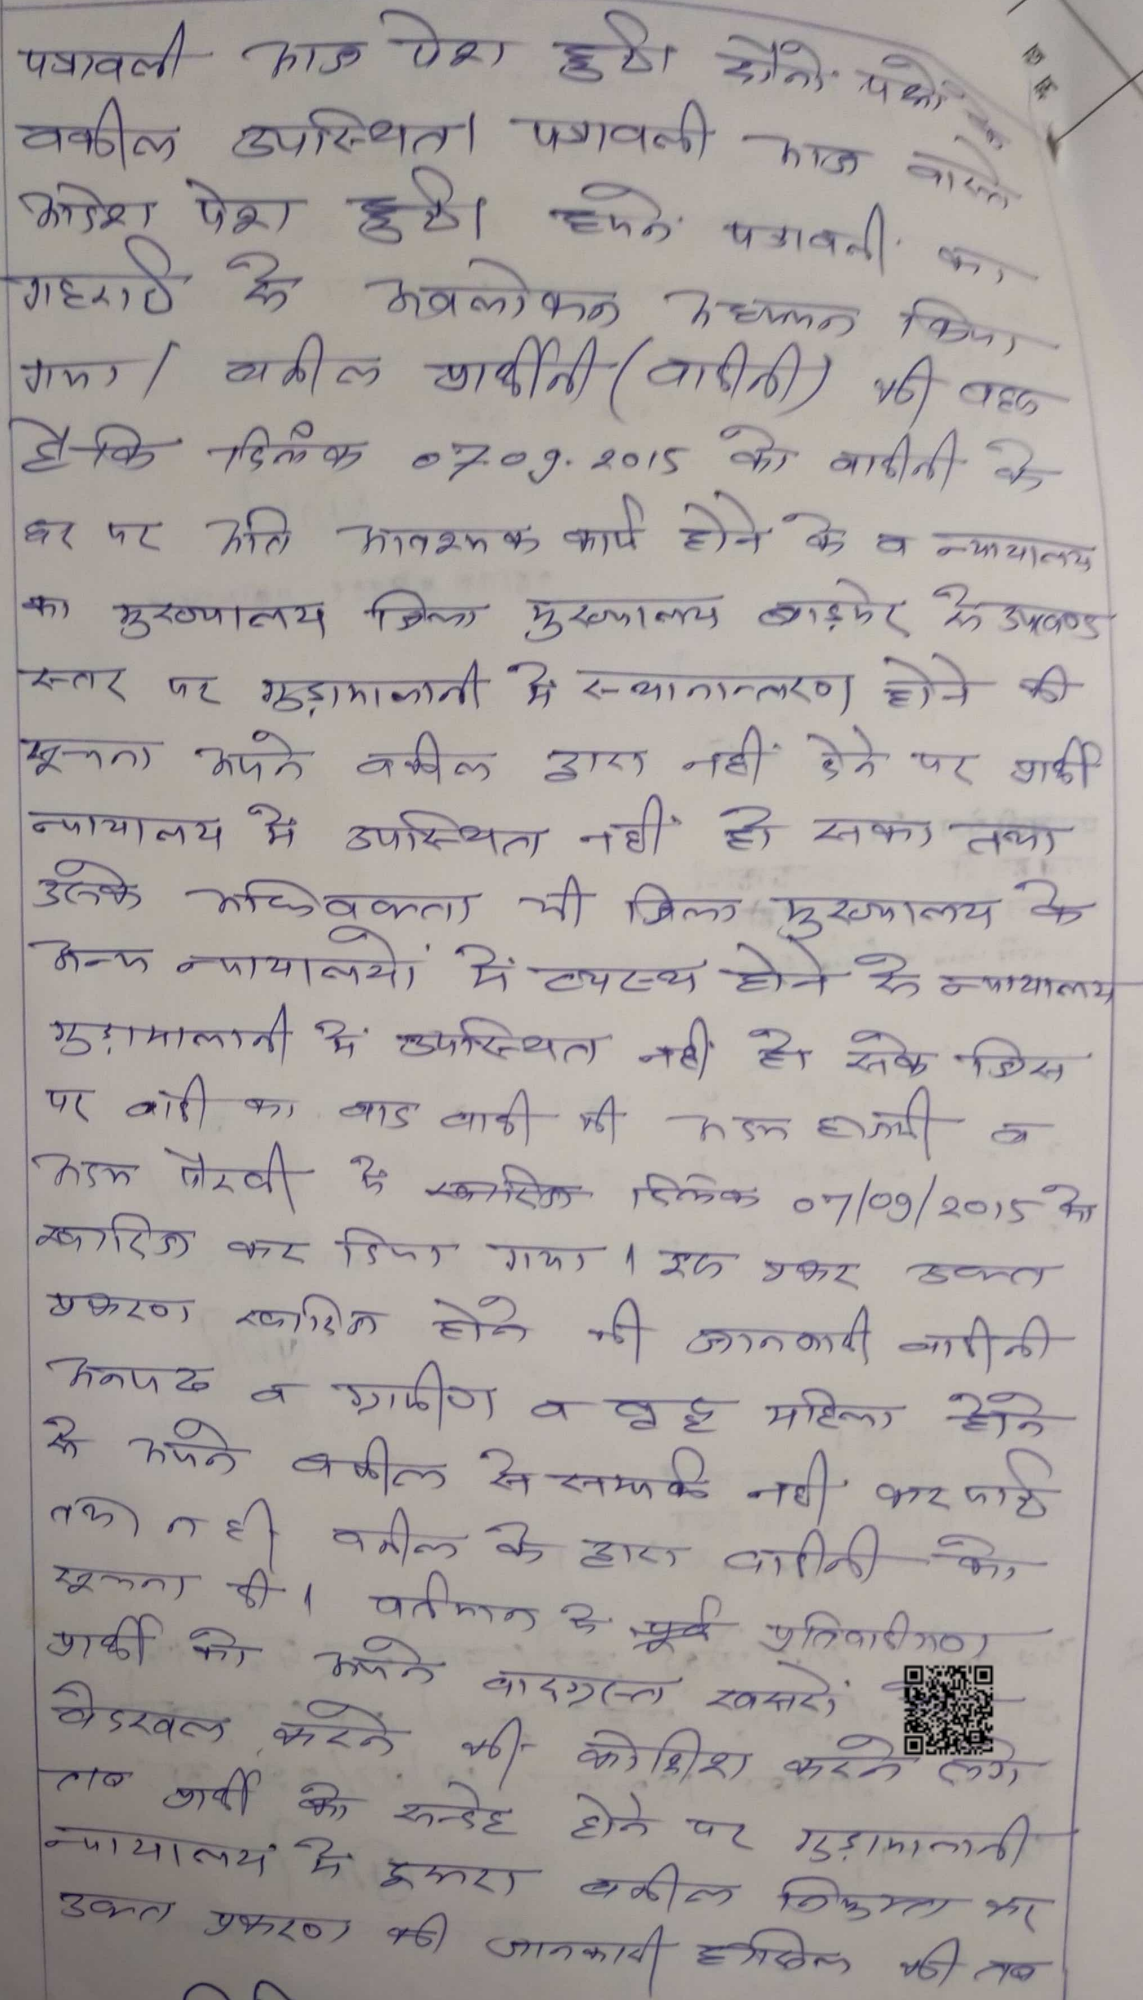 पत्रावली आज पेश हुई। दोनों पक्षों के
वकील उपस्थित। पत्रावली आज वास्ते
आदेश पेश हुई। हमने पत्रावली का
गहराई से अवलोकन अध्ययन किया
गया। वकील प्रार्थीनी (वादीनी) की बहस
है कि दिनांक 07.09.2015 को वादीनी के
घर पर अति आवश्यक कार्य होने के व न्यायालय
का मुख्यालय जिला मुख्यालय बाड़मेर से उपखण्ड
स्तर पर गुड़ामालानी में स्थानान्तरण होने की
सूचना अपने वकील द्वारा नहीं देने पर प्रार्थी
न्यायालय में उपस्थित नहीं हो सका तथा
उनके अधिवक्ता भी जिला मुख्यालय के
अन्य न्यायालयों में व्यस्थ होने से न्यायालय
गुड़ामालानी में उपस्थित नहीं हो सके जिस
पर वादी का वाद वादी की अदम हाजरी व
अदम पैरवी में खारिज दिनांक 07/09/2015 को
खारिज कर दिया गया। इस प्रकार उक्त
प्रकरण खारिज होने की जानकारी वादीनी
अनपढ व ग्रामीण व वृद्ध महिला होने
से अपने वकील से सम्पर्क नहीं कर पाई
तथा न ही वकील के द्वारा वादीनी को
सूचना दी। वर्तमान में पूर्व प्रतिवादीगण
प्रार्थी को अपने वादग्रस्त खसरों
बेदखल करने की कोशिश करने लगे
तब प्रार्थी को सन्देह होने पर गुड़ामालानी
न्यायालय में दूसरा वकील नियुक्त कर
उक्त प्रकरण की जानकारी हासिल की तब